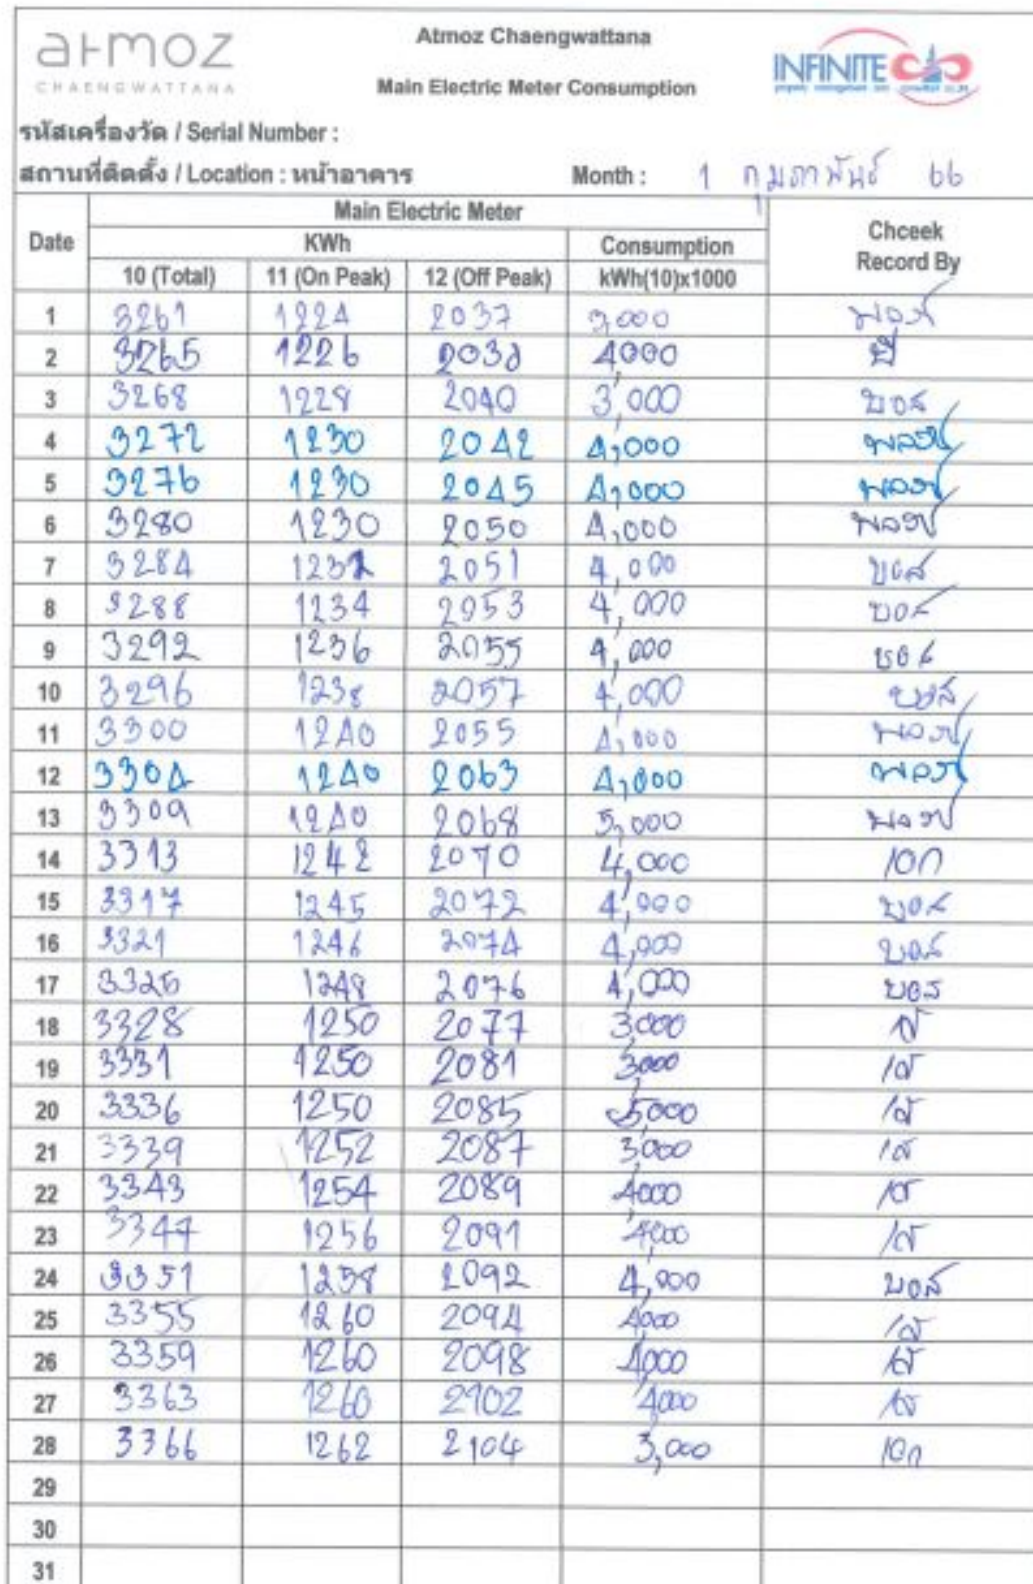 atmoz
CHAENGWATTANA
Atmoz Chaengwattana
Main Electric Meter Consumption
INFINITE
รหัสเครื่องวัด / Serial Number :
สถานที่ติดตั้ง / Location : หน้าอาคาร Month : 1 กุมภาพันธ์ 66
Date Main Electric Meter Chceek Record By
KWh Consumption
10 (Total) 11 (On Peak) 12 (Off Peak) kWh(10)x1000
1 3261 1224 2037 3,000
2 3265 1226 2038 4000 บี
3 3268 1228 2040 3,000 บอส
4 3272 1230 2042 4,000
5 3276 1230 2045 4,000
6 3280 1230 2050 4,000
7 3284 1232 2051 4,000 บอส
8 3288 1234 2053 4,000 บอส
9 3292 1236 2055 4,000 บอส
10 3296 1238 2057 4,000 บอส
11 3300 1240 2055 4,000
12 3304 1240 2063 4,000
13 3309 1240 2068 5,000
14 3313 1242 2070 4,000 เอก
15 3317 1245 2072 4,000 บอส
16 3321 1246 2074 4,000 บอส
17 3325 1248 2076 4,000 บอส
18 3328 1250 2077 3,000
19 3331 1250 2081 3,000
20 3336 1250 2085 5,000
21 3339 1252 2087 3,000
22 3343 1254 2089 4000
23 3347 1256 2091 4,000
24 3351 1258 2092 4,000 บอส
25 3355 1260 2094 4,000
26 3359 1260 2098 4,000
27 3363 1260 2102 4,000
28 3366 1262 2104 3,000 เอก
29
30
31